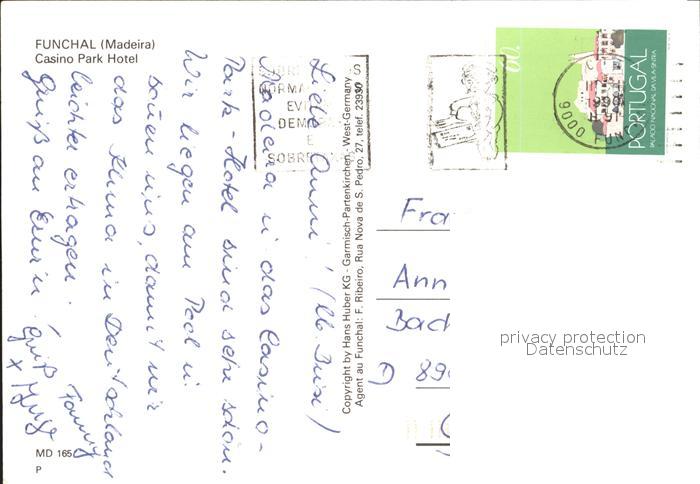 FUNCHAL (Madeira)
Casino Park Hotel
Liebe Anni! (Lb. Busi)
Madeira u. das Casino-
Park-Hotel sind sehr schön.
Wir liegen am Pool u.
sonnen uns, damit wir
das Klima in Deutschland
leichter ertragen.
Gruß an Erwin.
Gruß Fanny
MD 165
P
Copyright by Hans Huber KG - Garmisch-Partenkirchen - West-Germany
Agent au Funchal: F. Ribeiro, Rua Nova de S. Pedro, 27, telef. 23930
EVI
DEM
E
SOBRE
PORTUGAL
PALÁCIO NACIONAL DA VILA-SINTRA
9000 FUN
Fra
Ann
Bach
D 890
privacy protection
Datenschutz